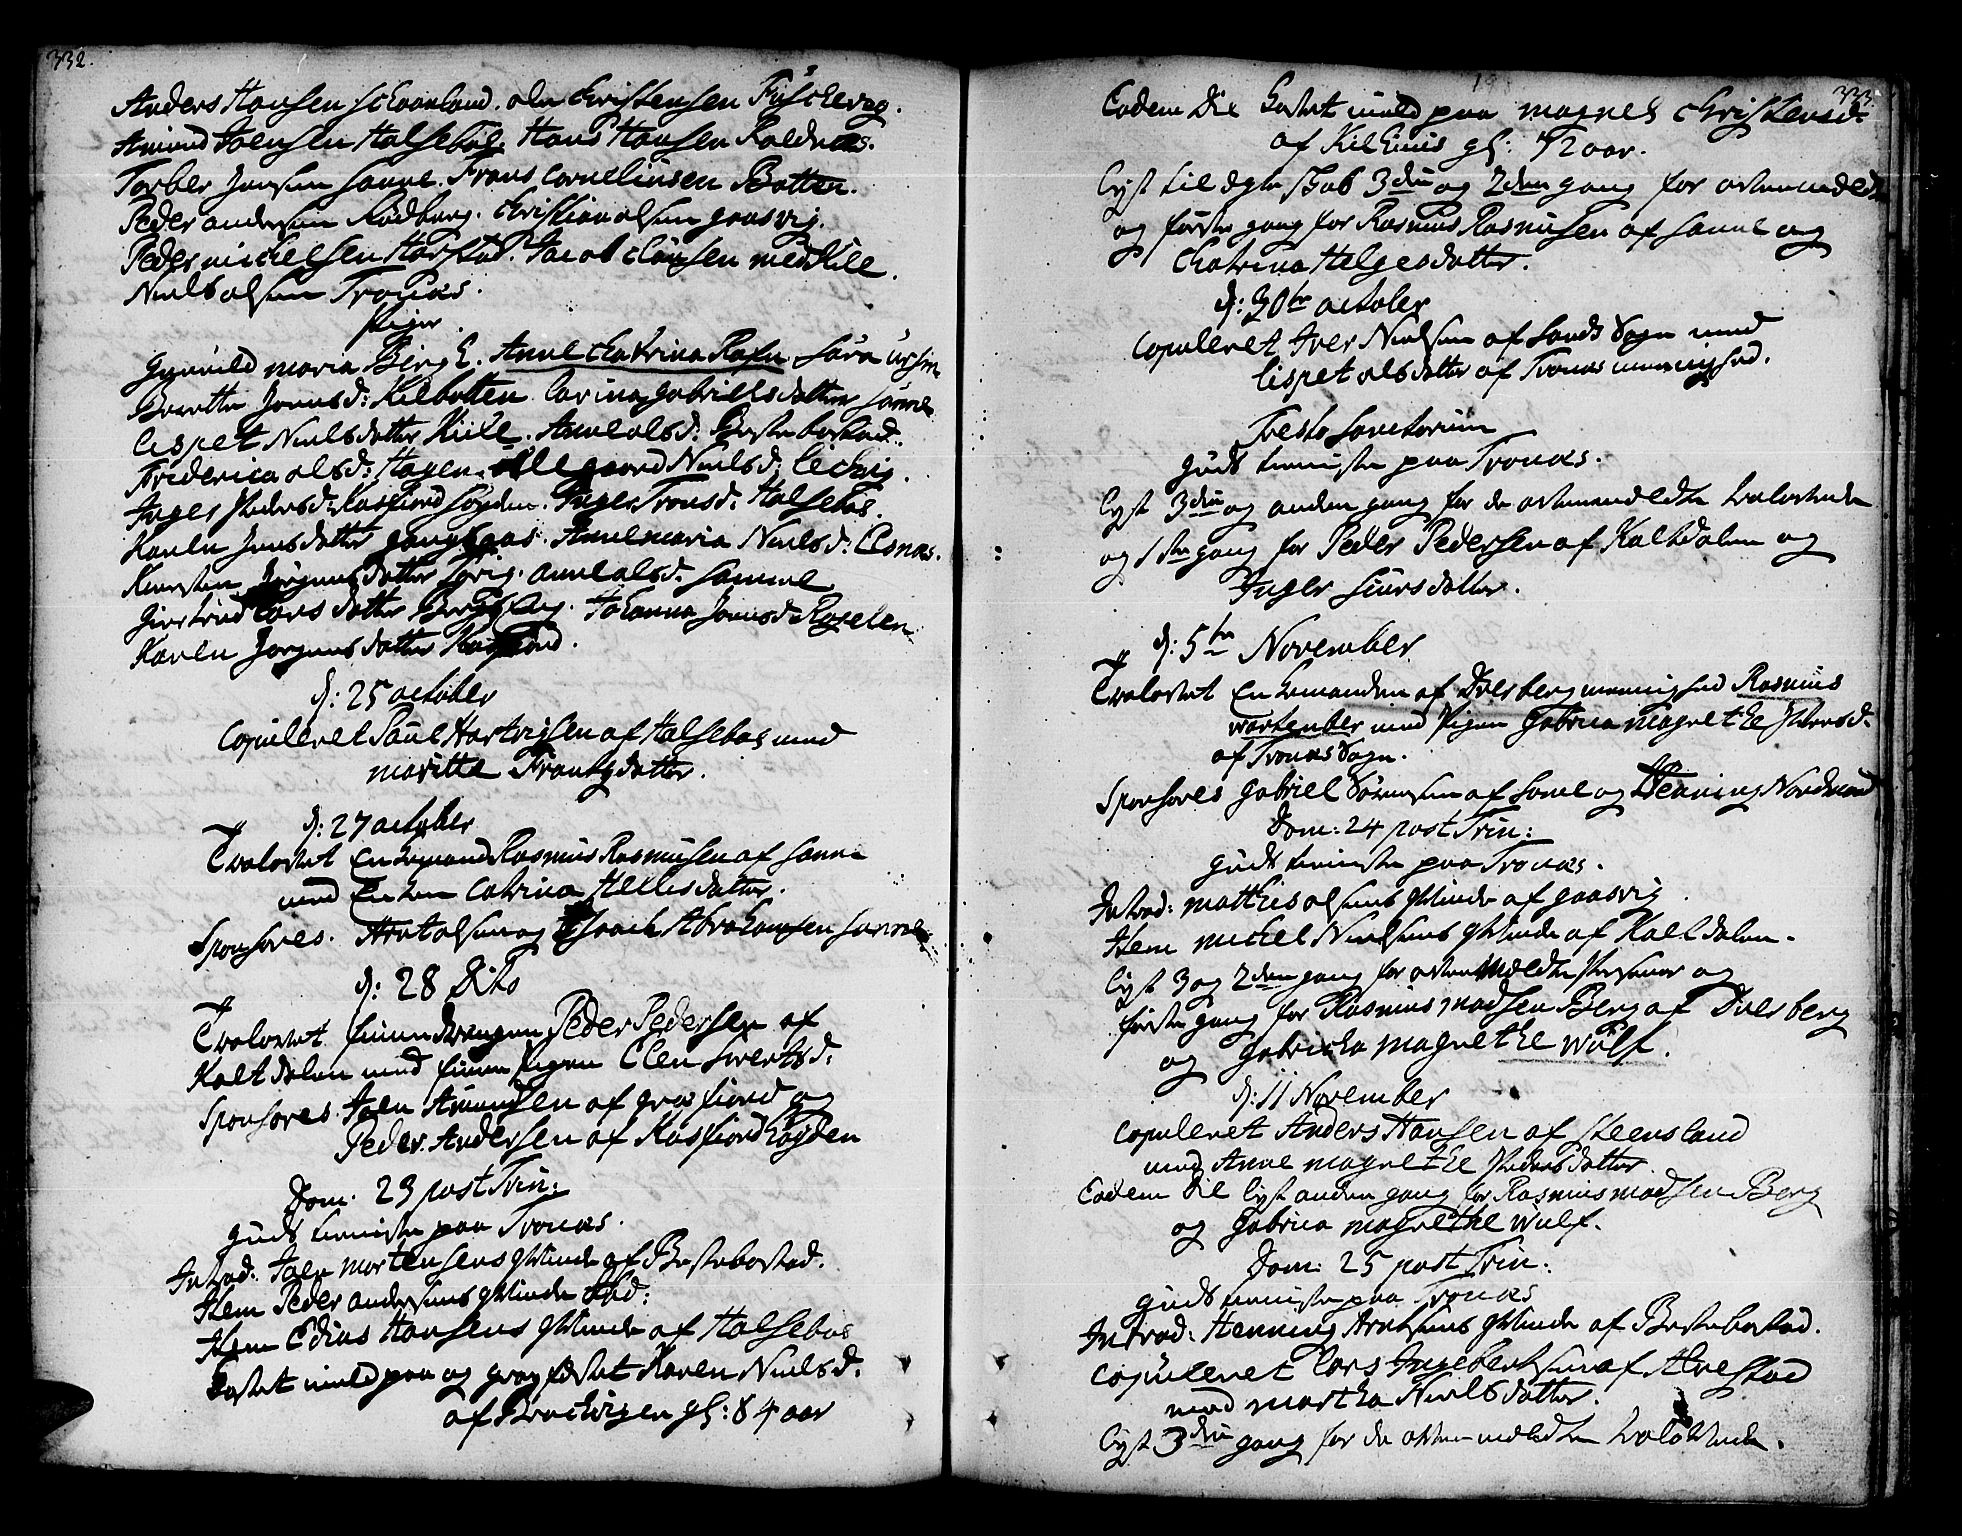 332.
Anders Hansen schaanland. ole christensen Fuschevog.
Amund Joensen Halsebøe. Hans Hansen Roldnæs.
Torber Jensen sanne. Frans Corneliusen Botten.
Peder andersen Rødberg. christian olsen gaasvig.
Peder michelsen Harstad. Jacob clausen medkile.
Niels olsen Tronæs.
Piger.
gunnild maria Birg. Anne chatrina Rafn sara
Berette Jonsd: Kilbotten Carina gabrielsdatter sanne
Lispet Nielsdatter Kiile. Anne olsd: Bestebostad.
Friderica olsd: Hagen. Nielsd:
Inger Pedersd: Kasfiord høyden. Inger Tronsd: Halsebøe.
Karen Jensdatter gangsaas. Anne maria Nielsd: Elsnæs.
Kiersten Jørgensdatter sørig. anne olsd. samme
giertrud Larsdatter Bergsvog. Johanna Jonsd. Røgelen
Karen Jørgensdatter Kasfiord.
d: 25 october
copuleret Paul Hartvigsen af Halsebøe med
maritte Frantzdatter.
d: 27 october
Trolovet Enkemand Rasmus Rasmusen af sanne
med Enken Catrina Hellesdatter.
Sponsores. Arent olsen og Isaach Abrahamsen sanne
d: 28 Dito
Trolovet finnedrengen Peder Pedersen af
Kaltdalen med finnepigen Elen Siversd:
Sponsores. Joen Amundsen af græsfiord og
Peder Andersen af Kasfiord høyden
Dom. 23 post Trin:
guds tieniste paa Tronæs.
Introd: Joen mortensens qvinde af Bestebostad.
Item Peder andersens qvinde ibid:
Item Edias Hansens qvinde af Halsebøe
Kastet muld paa og gravfæstet Karen Nielsd.
af Brochvigen gl: 84 aar
333.
Eodem Die Kastet muld paa magnel christensd:
af Kilhuus gl: 72 aar.
Lyst til ægteskab 3die og 2den gang for ovenmeldte
og første gang for Rasmus Rasmusen af sanne og
Chatrina Helgesdatter.
d: 30te october
copuleret Iver Nielsen af Sands Sogn med
Lispet olsdatter af Tronæs menighed.
Festo sanctorum
guds tieniste paa Tronæs.
Lyst 3die og anden gang for de ovenmeldte trolovede
og 1ste gang for Peder Pedersen af Kaltdalen og
Inger siursdatter.
d: 5te November
Trolovet Enkemanden af Dverberg menighed Rasmus
med Pigen Gabrica magnethe Iversd.
af Tronæs Sogn.
Sponsores gabriel Sørensen af sanne og Henning Nordmand
Dom: 24 post Trin:
guds tieniste paa Tronæs.
Introd: matthis olsens qvinde af gaasvig.
Item michel Nielsens qvinde af Kaltdalen.
Lyst 3 og 2den gang for ovenmeldte Personer og
første gang for Rasmus madsen Berg af Dverberg
og gabricka magnethe Wulf.
d: 11 November
copuleret Anders Hansen af steensland
med Anne magnethe Pedersdatter.
Eodem Die Lyst anden gang for Rasmus madsen Berg
og Gabrica magnethe Wulf.
Dom: 25 post Trin:
guds tieniste paa Tronæs
Introd: Henning Arntsens qvinde af Bestebostad.
copuleret Lars Ingebertsen af Elvestad
med martha Nielsdatter.
Lyst 3die gang for de ovenmeldte trolovede.